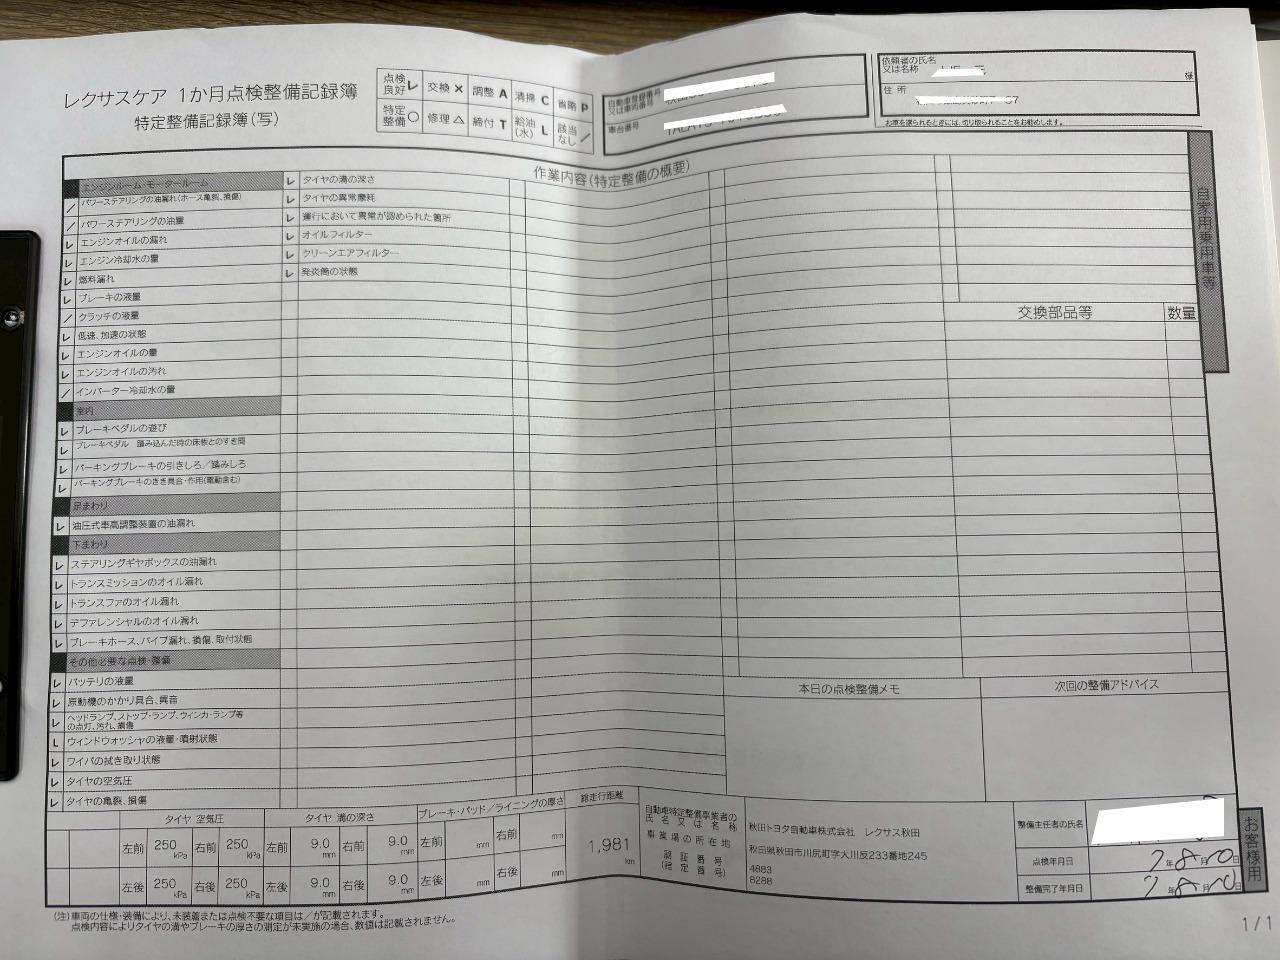 レクサスケア 1か月点検整備記録簿
特定整備記録簿(写)
点検良好 レ 交換 × 調整 A 清掃 C 省略 P
特定整備 ○ 修理 △ 締付 T 給油(水) L 該当なし ／
自動車登録番号又は車両番号
車台番号
依頼者の氏名又は名称
様
住所
お車を譲られるときには、切り取られることをお勧めします。
自家用乗用車等
作業内容(特定整備の概要)
エンジンルーム・モータールーム
／ パワーステアリングの油漏れ(ホース亀裂、損傷)
／ パワーステアリングの油量
レ エンジンオイルの漏れ
レ エンジン冷却水の量
レ 燃料漏れ
レ ブレーキの液量
／ クラッチの液量
レ 低速、加速の状態
レ エンジンオイルの量
レ エンジンオイルの汚れ
／ インバーター冷却水の量
室内
レ ブレーキペダルの遊び
レ ブレーキペダル 踏み込んだ時の床板とのすき間
レ パーキングブレーキの引きしろ／踏みしろ
レ パーキングブレーキのきき具合・作用(電動含む)
足まわり
レ 油圧式車高調整装置の油漏れ
下まわり
レ ステアリングギヤボックスの油漏れ
レ トランスミッションのオイル漏れ
レ トランスファのオイル漏れ
レ デファレンシャルのオイル漏れ
レ ブレーキホース、パイプ漏れ、損傷、取付状態
その他必要な点検・整備
レ バッテリの液量
レ 原動機のかかり具合、異音
レ ヘッドランプ、ストップ・ランプ、ウィンカ・ランプ等の点灯、汚れ、損傷
L ウィンドウオッシャの液量・噴射状態
レ ワイパの拭き取り状態
レ タイヤの空気圧
レ タイヤの亀裂、損傷
レ タイヤの溝の深さ
レ タイヤの異常摩耗
レ 運行において異常が認められた箇所
レ オイルフィルター
レ クリーンエアフィルター
レ 発炎筒の状態
交換部品等 数量
本日の点検整備メモ
次回の整備アドバイス
タイヤ 空気圧
左前 250 kPa 右前 250 kPa
左後 250 kPa 右後 250 kPa
タイヤ 溝の深さ
左前 9.0 mm 右前 9.0 mm
左後 9.0 mm 右後 9.0 mm
ブレーキ・パッド／ライニングの厚さ
左前 mm 右前 mm
左後 mm 右後 mm
総走行距離
1,981 km
自動車特定整備事業者の氏名又は名称 秋田トヨタ自動車株式会社 レクサス秋田
事業場の所在地 秋田県秋田市川尻町字大川反233番地245
認証番号 4883
(指定番号) 8288
整備主任者の氏名
点検年月日 7年8月10日
整備完了年月日 7年8月10日
お客様用
(注)車両の仕様・装備により、未装着または点検不要な項目は／が記載されます。
点検内容によりタイヤの溝やブレーキの厚さの測定が未実施の場合、数値は記載されません。
1/1